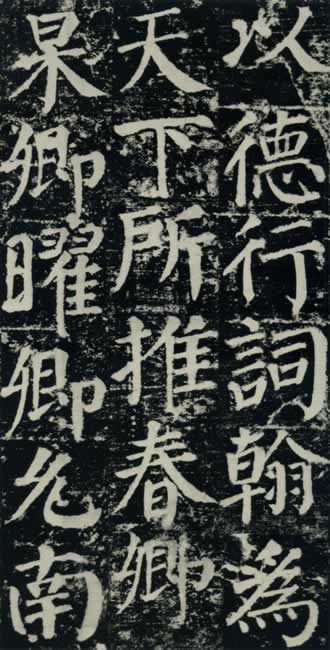 以德行詞翰為
天下所推春卿
杲卿曜卿允南